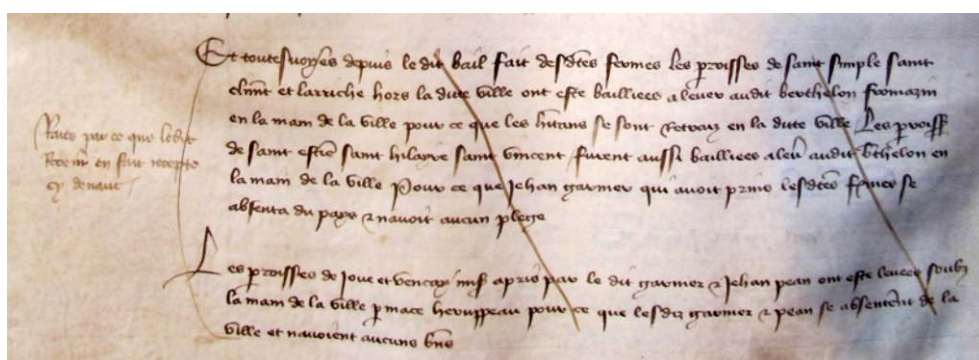 Et toutesvoyes depuis le dit bail fait desdtes fermes les proisses de saint simple saint
clmt et larriche hors la dite ville ont este bailliees a lever audit berthelon fromazin
en la main de la ville pour ce que les hitans se sont retraiz en la dite ville Les proiss
de saint estie saint hilayre saint vincent furent aussi bailliees a lev audit bthelon en
la main de la ville pour ce que Jehan garnier qui avoit prins lesdtes fermes se
absenta du pays et navoit aucun plege
Raiee par ce que ledit
en fait recepte
cy devant
Les proisses de Joue et apris par le dit garnier et Jehan pean ont este levees soubz
la main de la ville p mace heruppeau pour ce que lesdiz garnier et pean se absentent de la
ville et navoient aucuns bns